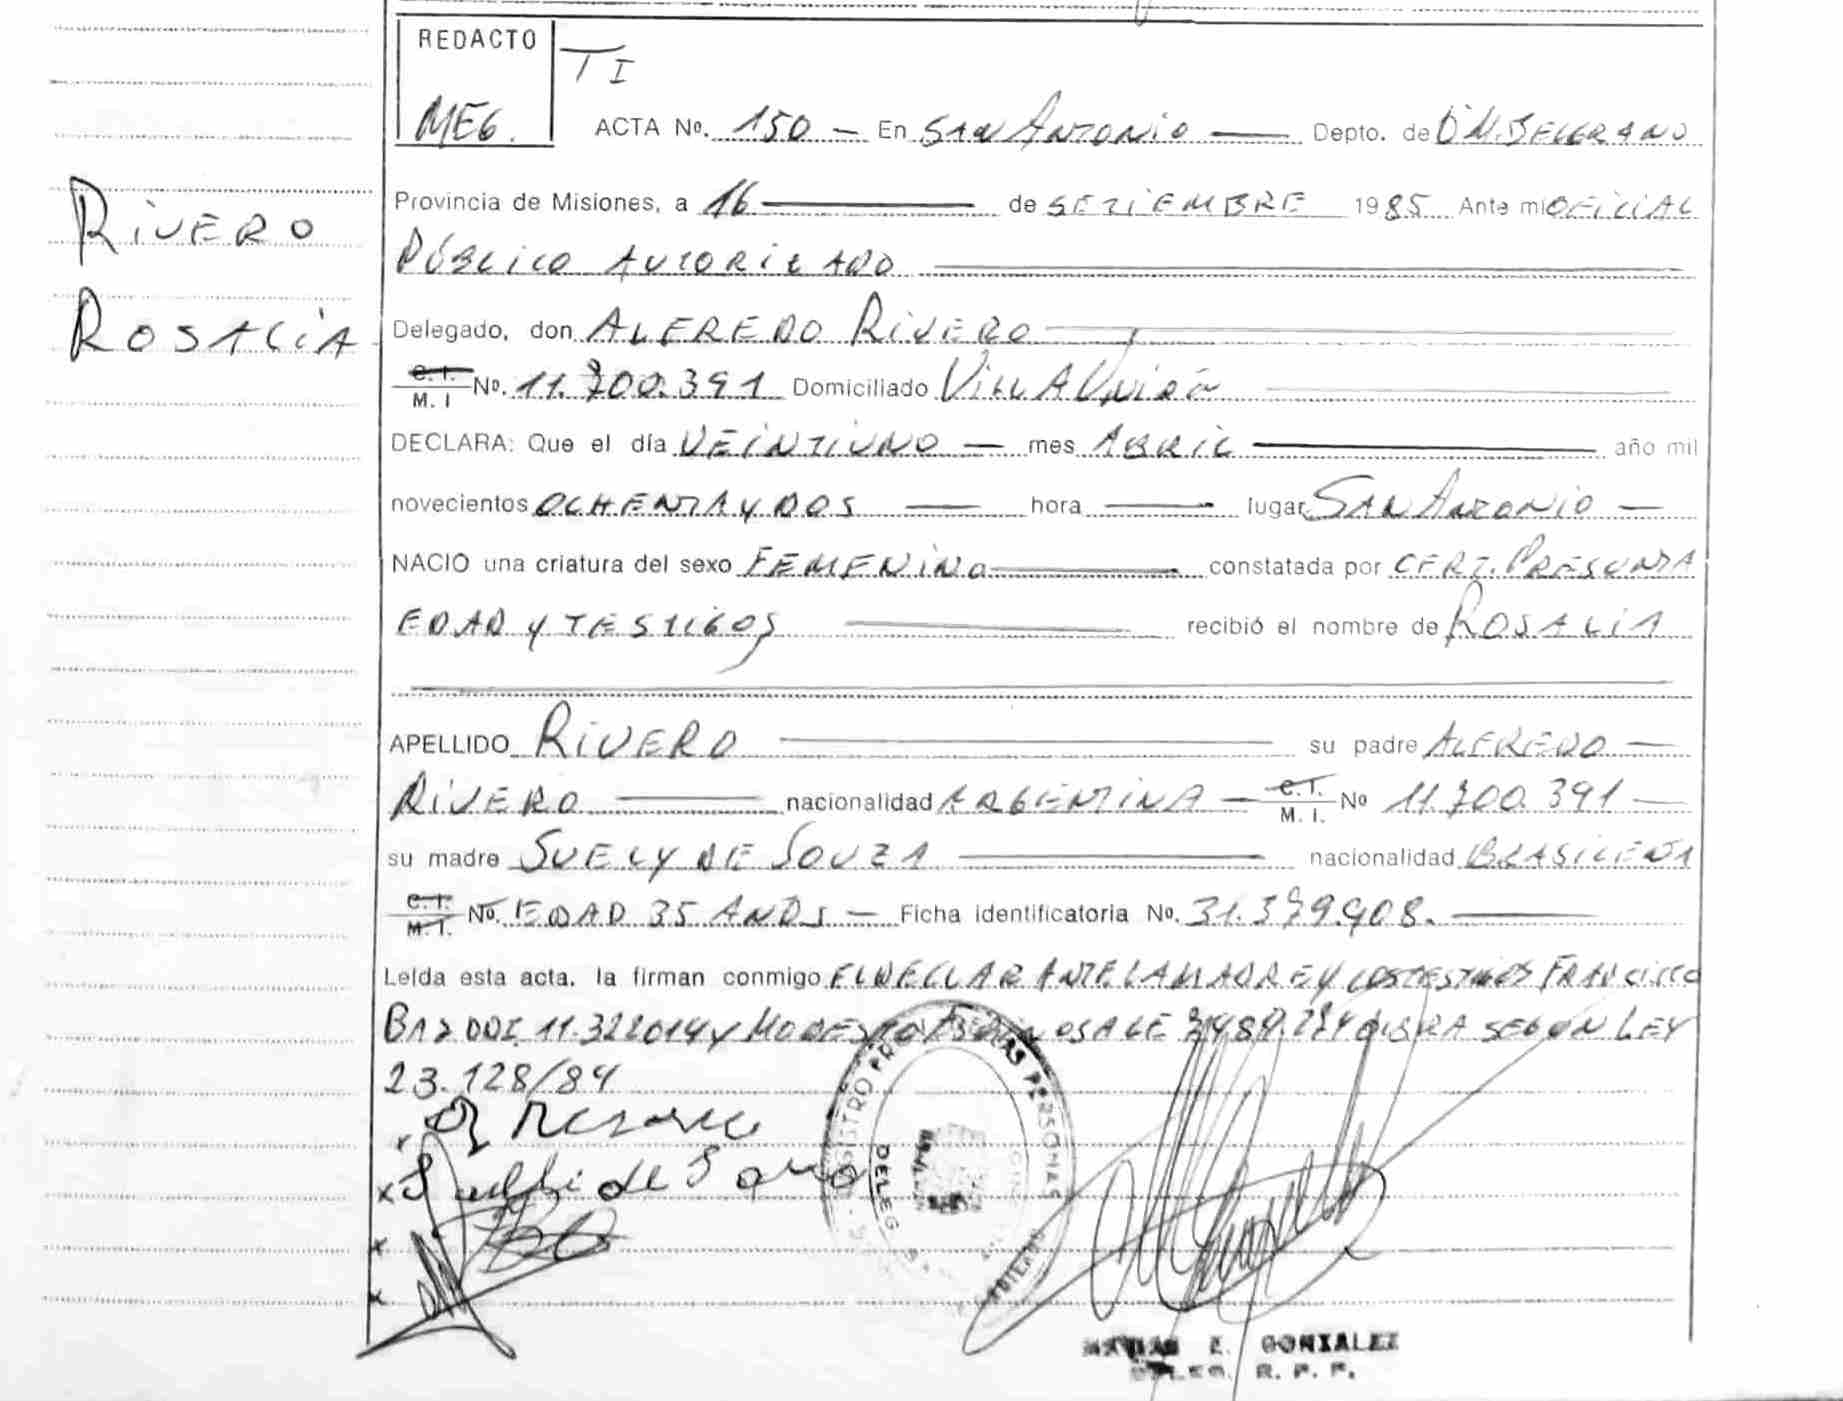 REDACTO
T I
MEG. ACTA No. 150 — En SAN ANTONIO — Depto. de D M. BELGRANO
Provincia de Misiones, a 16 — de SETIEMBRE 1985 Ante mi OFICIAL
RIVERO
PÚBLICO AUTORIZADO
ROSALIA
Delegado, don ALFREDO RIVERO
C. I. M. I No. 11.700.391 Domiciliado VILLA UNIÓN
DECLARA: Que el día VEINTIUNO — mes ABRIL — año mil
novecientos OCHENTA Y DOS — hora — lugar SAN ANTONIO —
NACIO una criatura del sexo FEMENINO — constatada por CERT. PRESUNTA
EDAD Y TESTIGOS — recibió el nombre de ROSALIA
APELLIDO RIVERO — su padre ALFREDO —
RIVERO — nacionalidad ARGENTINA — C.I. M. I. No 11.700.391 —
su madre SUELY DE SOUZA — nacionalidad BRASILEÑA
C.I. M.I. No. EDAD 35 AÑOS — Ficha identificatoria No. 31.379.908. —
Leída esta acta, la firman conmigo EL DECLARANTE LA MADRE Y LOS TESTIGOS FRANCISCO
DNI 11.322014 Y MODESTO LE SEGÚN LEY
23.128/84
de
REGISTRO PERSONAS
DELEG
E. GONZALEZ
R. P. P.